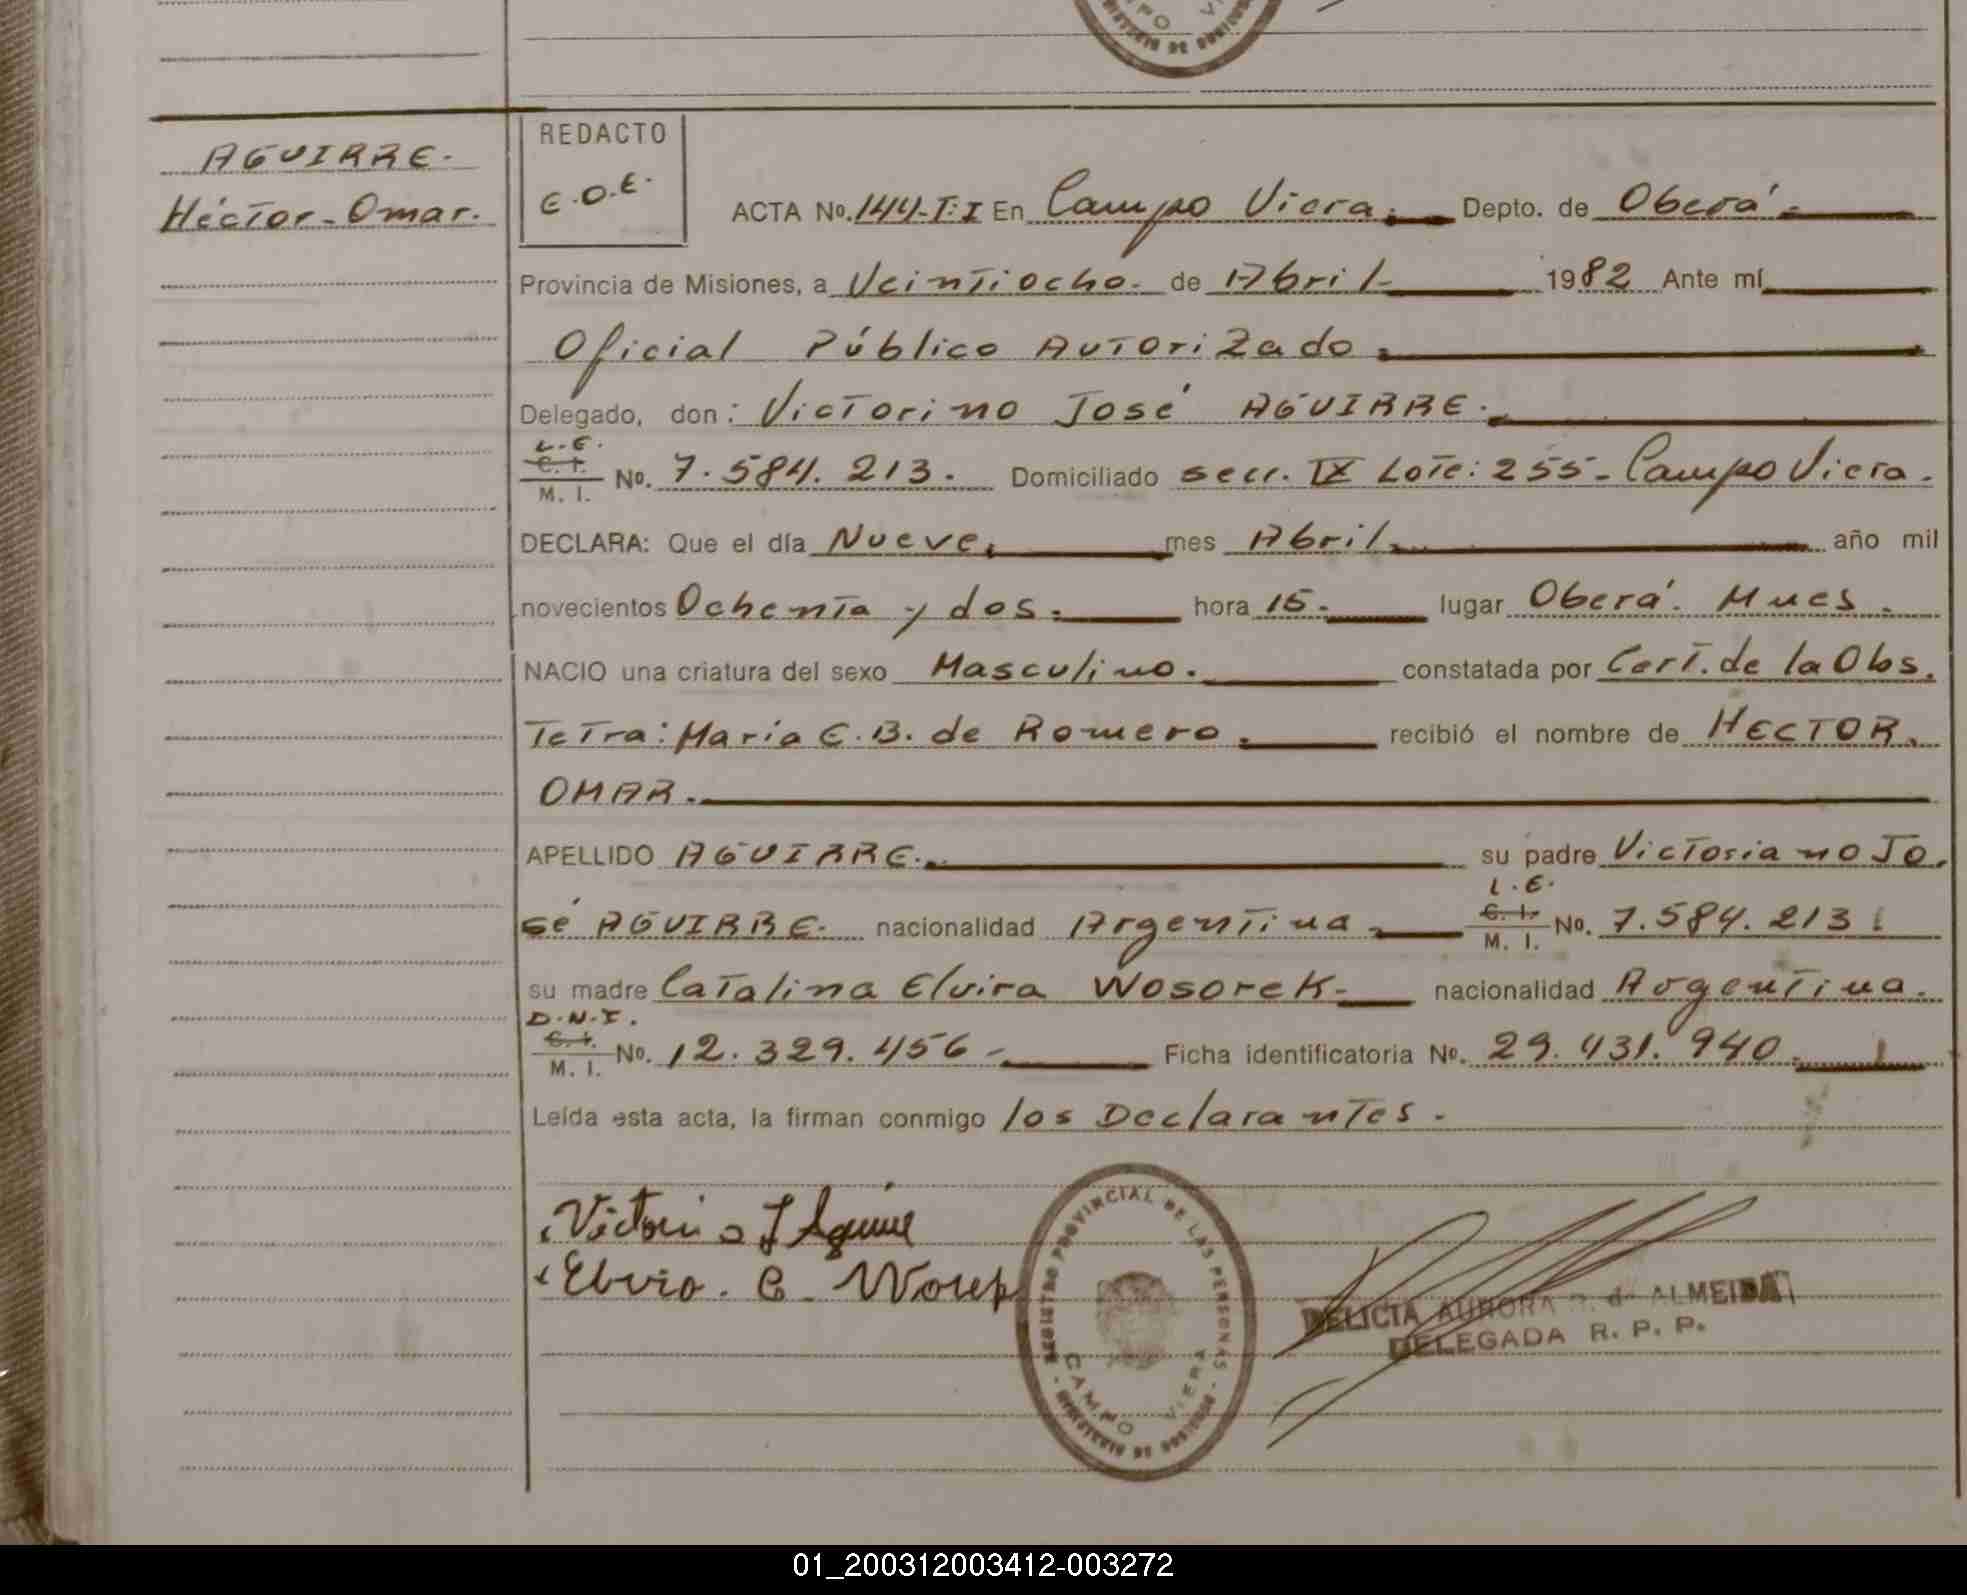 AGUIRRE.
Héctor-Omar.
REDACTO
E.O.E.
ACTA No. 144-T:I En Campo Viera. Depto. de Oberá.
Provincia de Misiones, a Veintiocho. de Abril- 1982 Ante mí
Oficial Público Autorizado.
Delegado, don: Victorino José AGUIRRE.
L.E.
C. I.
M. I.
No. 7.584.213. Domiciliado secc. IX Lote: 255-Campo Viera.
DECLARA: Que el día Nueve. mes Abril. año mil
novecientos Ochenta y dos. hora 15. lugar Oberá. Mnes.
NACIO una criatura del sexo Masculino. constatada por Cert. de la Obs.
Tetra: María E.B. de Romero. recibió el nombre de HECTOR.
OMAR.
APELLIDO AGUIRRE. su padre Victoriano Jo.
L.E.
sé AGUIRRE. nacionalidad Argentina. C. I. M. I. No. 7.584.213.
su madre Catalina Elvira Wosorek- nacionalidad Argentina.
D.N.I.
C. I.
M. I.
No. 12.329.456- Ficha identificatoria No. 29.431.940.
Leída esta acta, la firman conmigo los Declarantes-
Victorio J Aguirre
Elvira. C. 
REGISTRO PROVINCIAL DE LAS PERSONAS
MINISTERIO DE GOBIERNO
CAMPO VIERA
DELICIA AURORA de ALMEIDA
DELEGADA R. P. P.
01_200312003412-003272